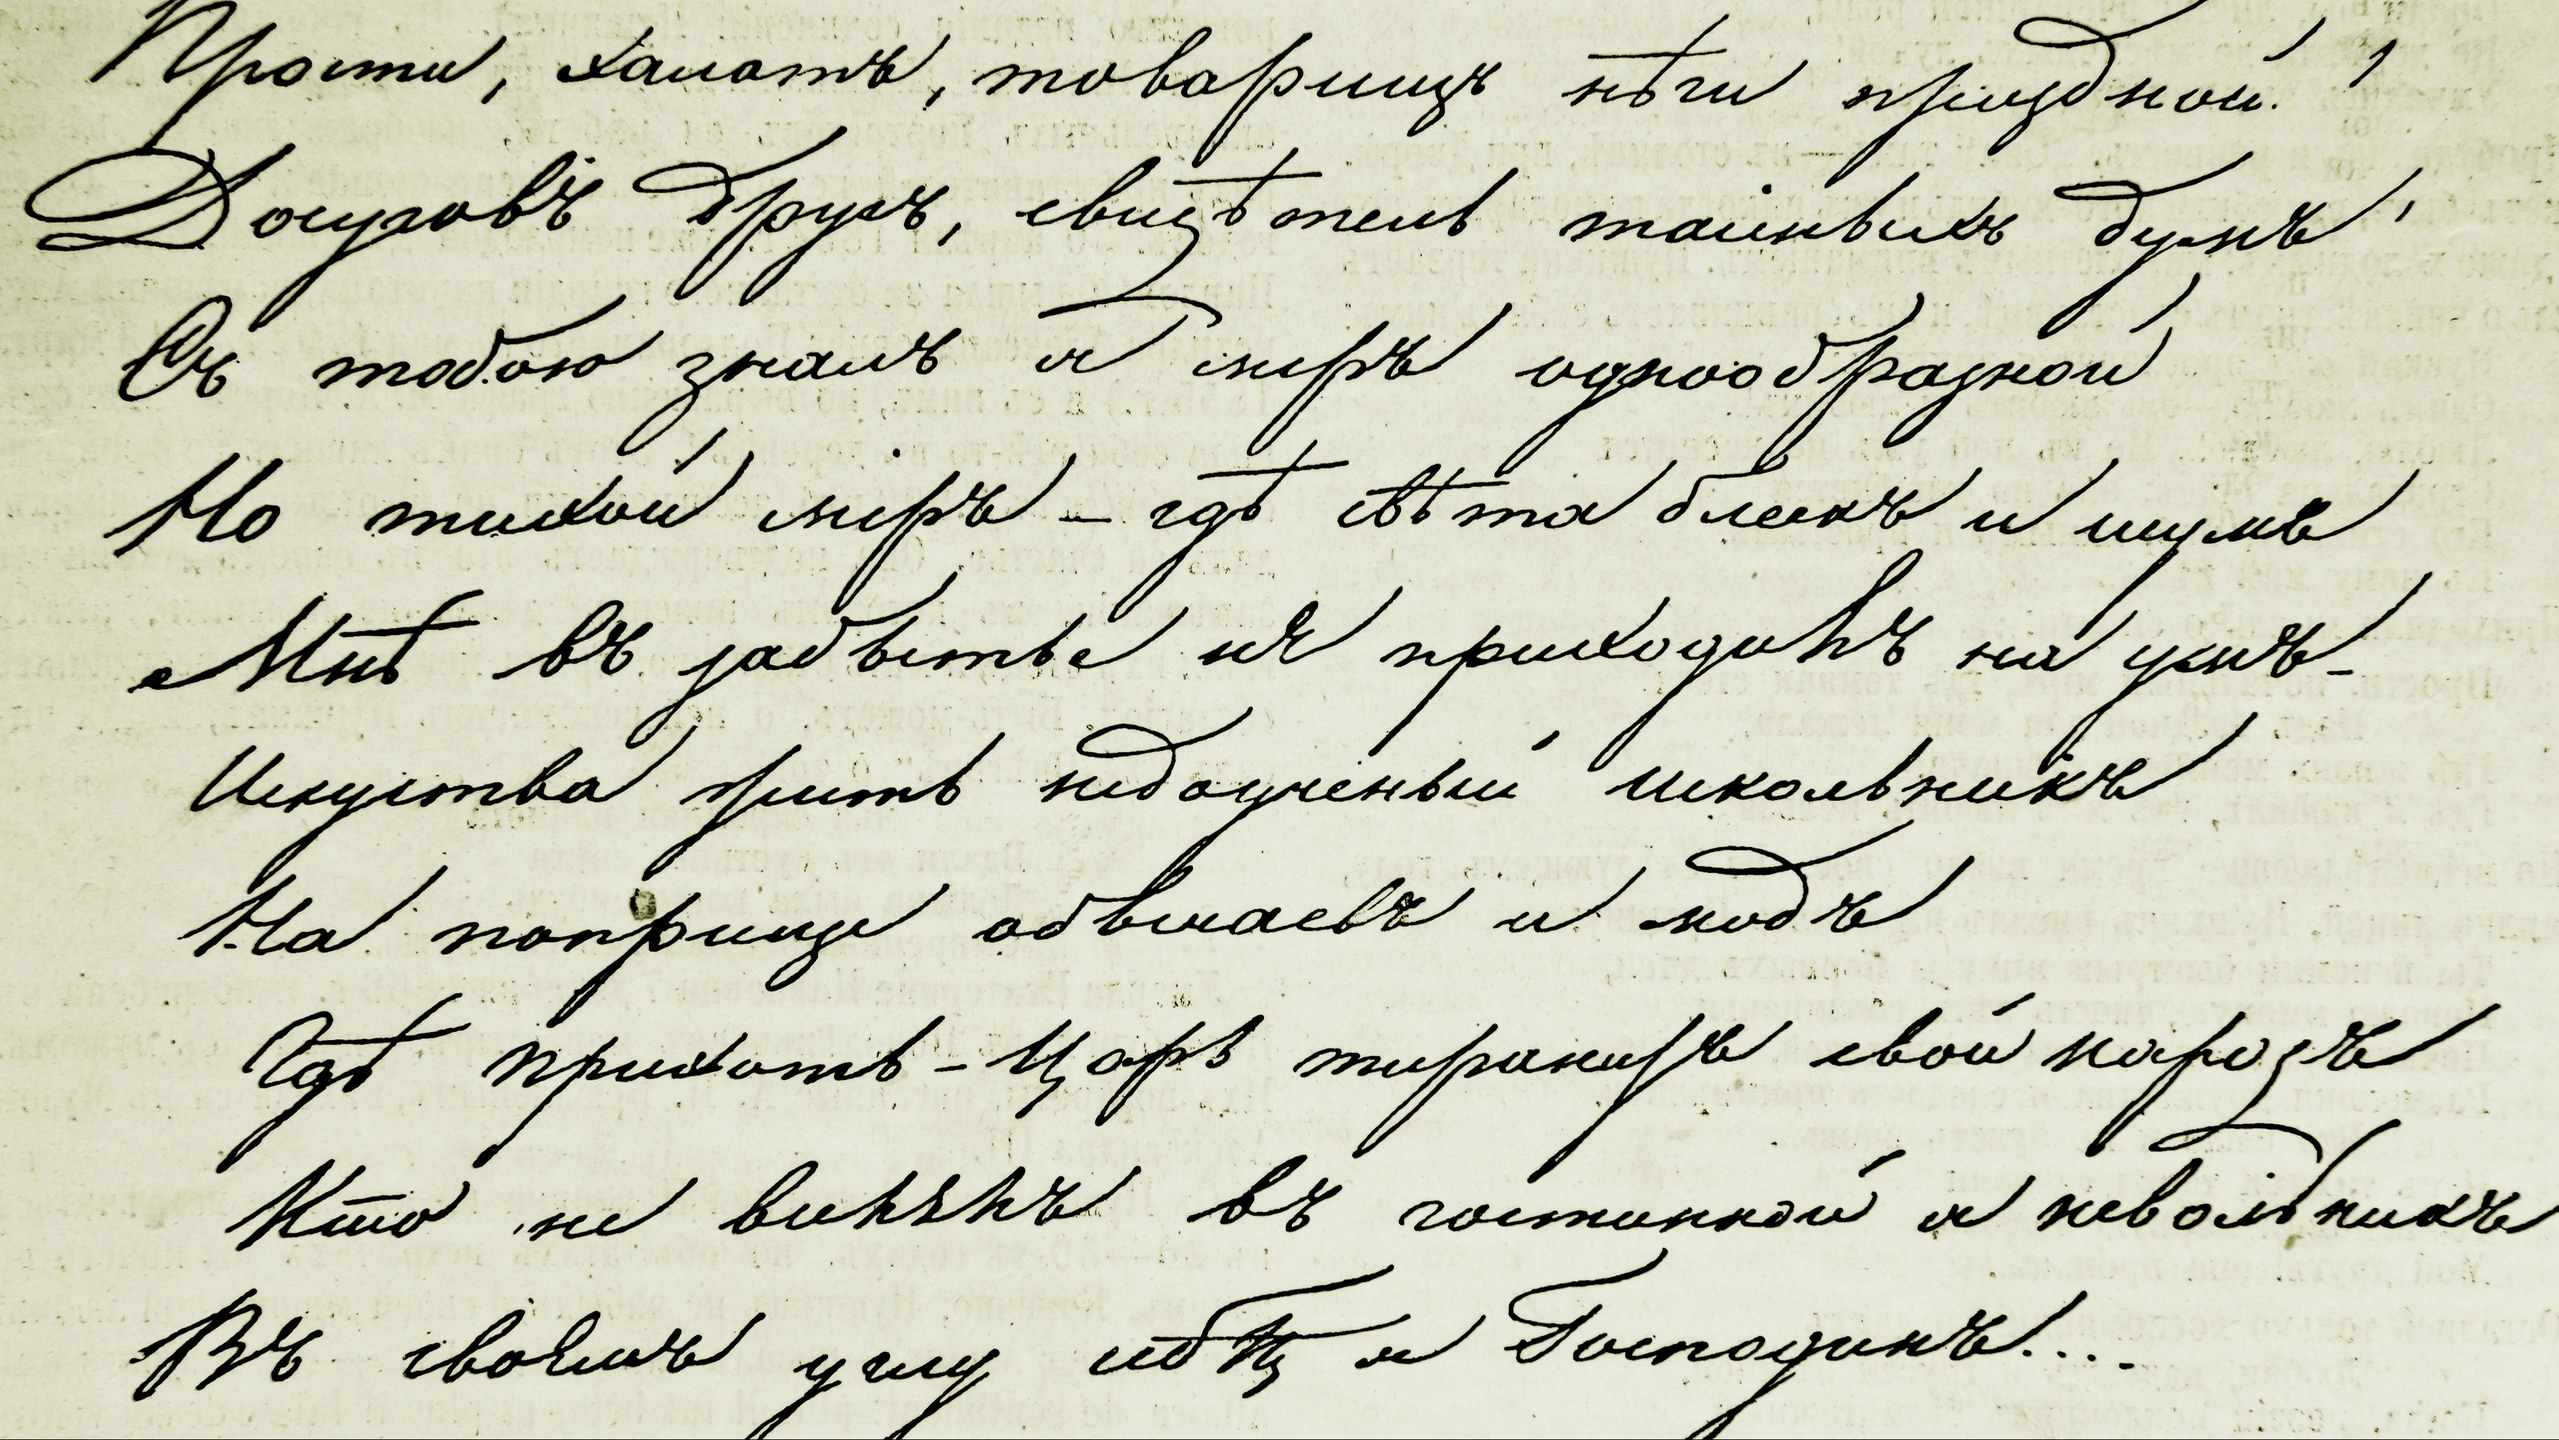 Прости, халатъ, товарищъ нѣги праздной,
Досуговъ другъ, свидѣтель тайныхъ думъ,
Съ тобою зналъ я миръ однообразной
Но тихой миръ – гдѣ свѣта блескъ и шумъ
Мнѣ въ забытье не приходилъ на умъ –
Искуства жить недоученый школьникъ
На поприще обычаевъ и модъ
Гдѣ прихоть – Царь тиранитъ свой народъ
Кто не видѣлъ въ гостинной я невольникъ
Въ своемъ углу себѣ я Господинъ....